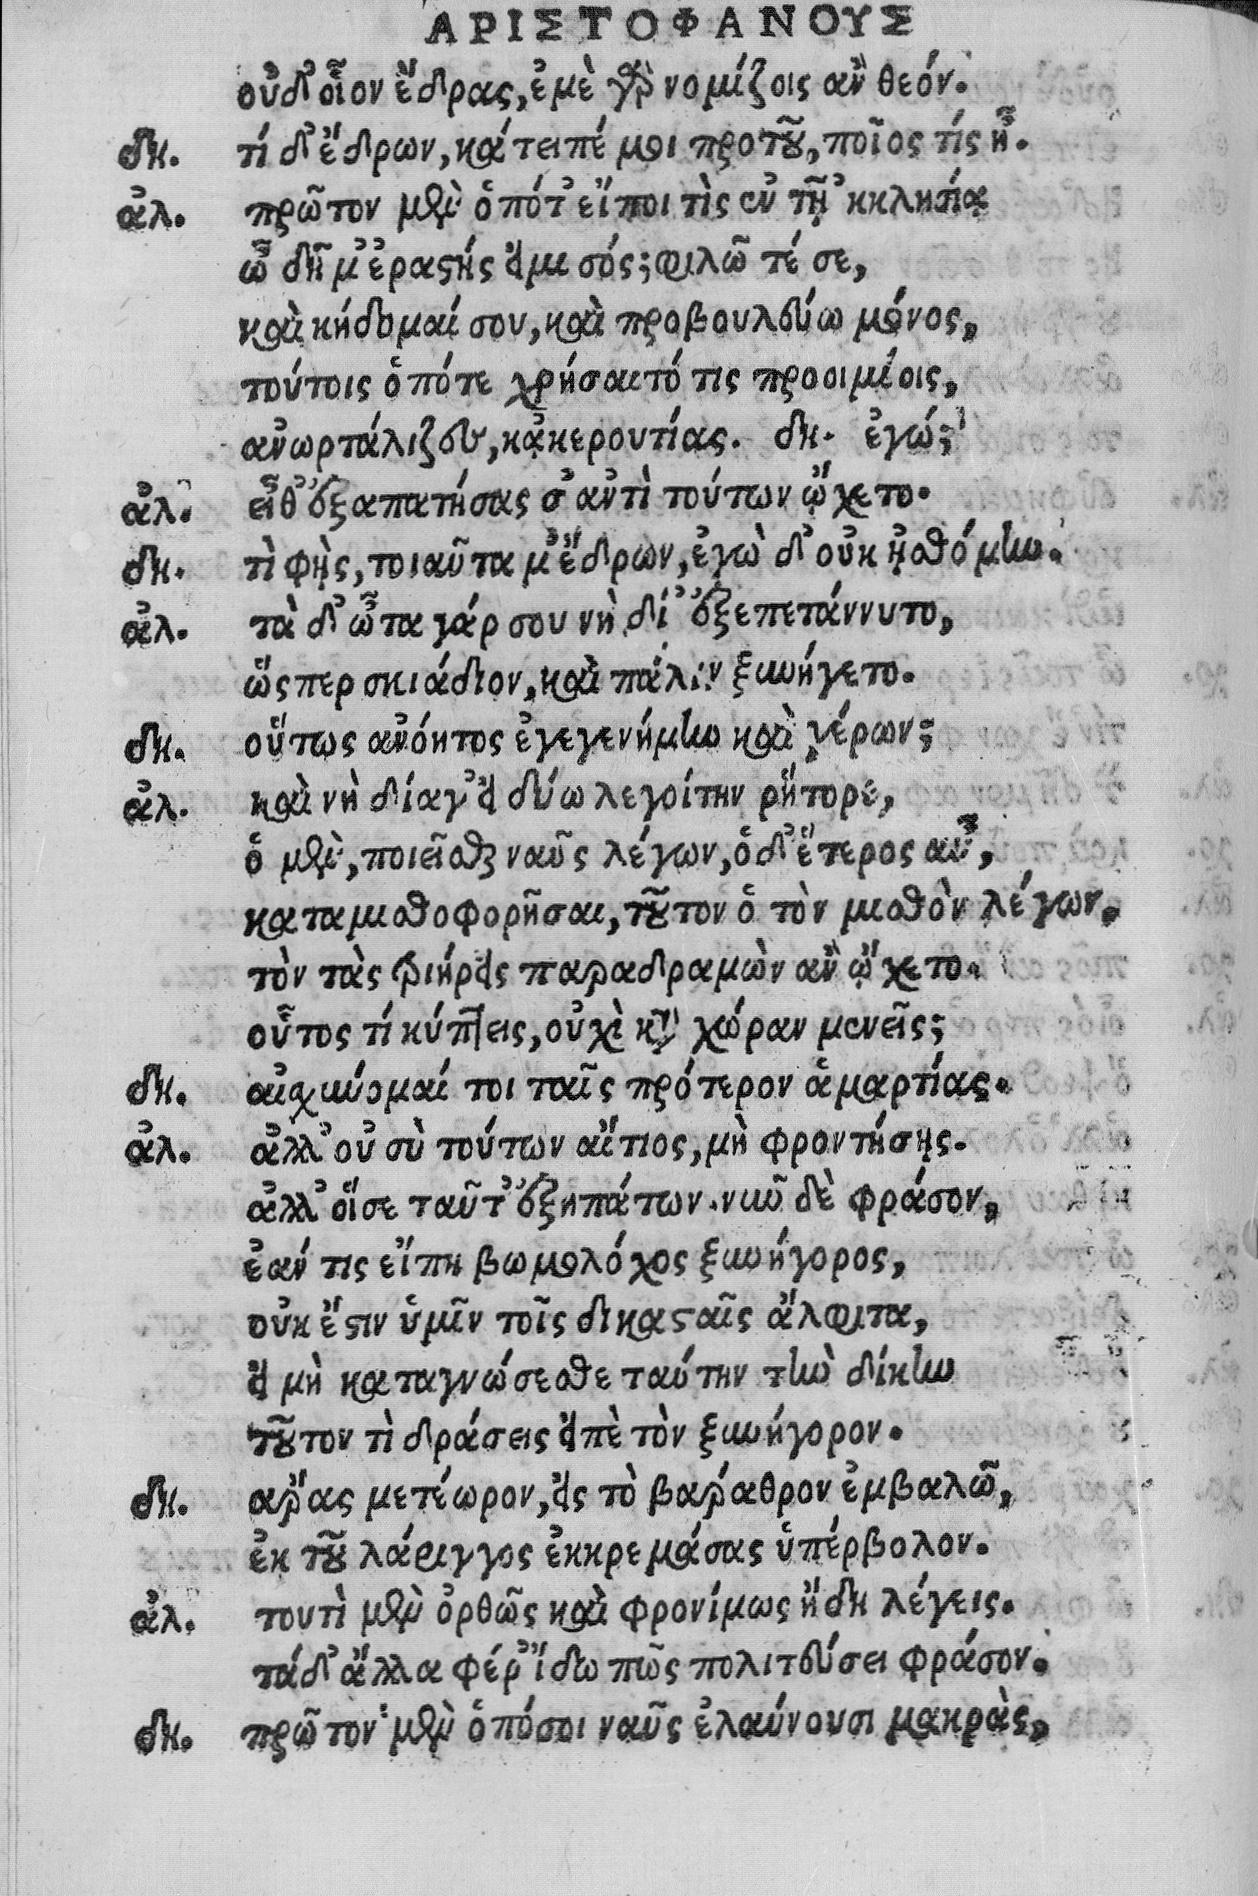 ΑΡΙΣΤΟΦΑΝΟΥΣ
οὐδ' οἷον ἔδρας, ἐμὲ γὰρ νομίζοις ἂν θεόν.
δη. τί δ' ἔδρων, κάτειπέ μοι πρὸ τοῦ, ποῖος τίς ἦ.
ἀλ. πρῶτον μὲν ὁπότ' εἴποι τὶς ἐν τῇ 'κκλησίᾳ
ὦ δῆμ' ἐραστής εἰμι σός; φιλῶ τέ σε,
καὶ κήδομαί σου, καὶ προβουλεύω μόνος,
τούτοις ὁπότε χρήσαιτό τις προοιμίοις,
ἀνωρτάλιζες, κἀκερουτίας. δη. ἐγώ;
ἀλ. εἶθ' ἐξαπατήσας σ' ἀντὶ τούτων ᾤχετο.
δη. τὶ φῂς, τοιαῦτα μ' ἔδρων, ἐγὼ δ' οὐκ ᾐσθόμην.
ἀλ. τὰ δ' ὦτα γάρ σου νὴ δί' ἐξεπετάννυτο,
ὥσπερ σκιάδιον, καὶ πάλιν ξυνήγετο.
δη. οὕτως ἀνόητος ἐγεγενήμην καὶ γέρων;
ἀλ. καὶ νὴ δία γ' εἰ δύω λεγοίτην ῥήτορε,
ὁ μὲν, ποιεῖσθαι ναῦς λέγων, ὁ δ' ἕτερος αὖ,
καταμισθοφορῆσαι, τοῦτον ὁ τὸν μισθὸν λέγων.
τὸν τὰς τριήρεις παραδραμὼν ἂν ᾤχετο.
οὗτος τί κύπτεις, οὐχὶ κατὰ χώραν μενεῖς;
δη. αἰσχύνομαί τοι ταῖς πρότερον ἁμαρτίας.
ἀλ. ἀλλ' οὐ σὺ τούτων αἴτιος, μὴ φροντήσῃς.
ἀλλ' οἵ σε ταῦτ' ἐξηπάτων. νῦν δὲ φράσον,
ἐάν τις εἴπη βωμολόχος ξυνήγορος,
οὐκ ἔστιν ὑμῖν τοῖς δικασταῖς ἄλφιτα,
εἰ μὴ καταγνώσεσθε ταύτην τὴν δίκην
τοῦτον τὶ δράσεις εἰπὲ τὸν ξυνήγορον.
δη. ἄρας μετέωρον, εἰς τὸ βάραθρον ἐμβαλῶ,
ἐκ τοῦ λάρυγγος ἐκκρεμάσας ὑπέρβολον.
ἀλ. τουτὶ μὲν ὀρθῶς καὶ φρονίμως ἤδη λέγεις.
τά δ' ἄλλα φέρ' ἴδω πῶς πολιτεύσει φράσον.
δη. πρῶτον μὲν ὁπόσοι ναῦς ἐλαύνουσι μακρὰς,